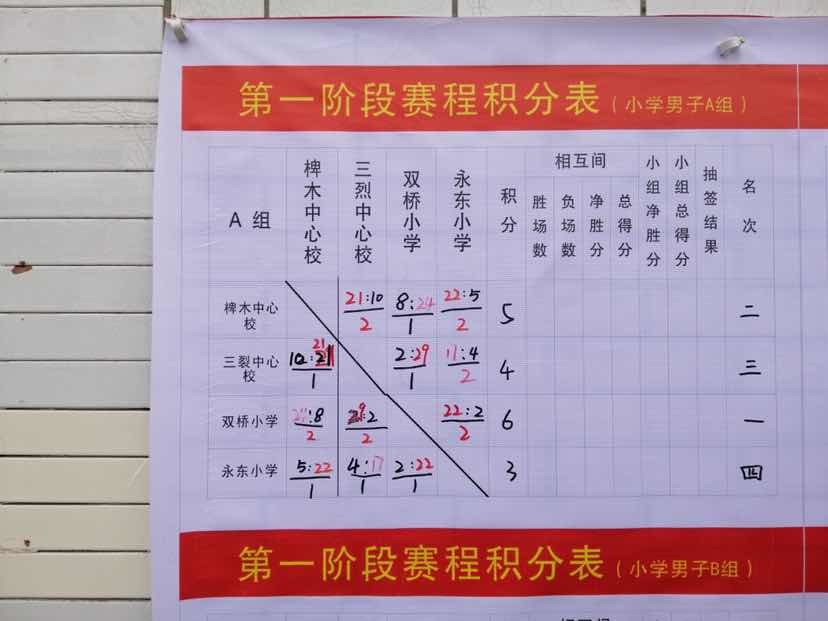 第一阶段赛程积分表（小学男子A组）
A组 椑木中心校 三烈中心校 双桥小学 永东小学 积分 相互间 胜场数 负场数 净胜分 总得分 小组净胜分 小组总得分 抽签结果 名次
椑木中心校 21:10 2 8:24 1 22:5 2 5 二
三裂中心校 10:21 1 2:29 1 17:4 2 4 三
双桥小学 24:8 2 29:2 2 22:2 2 6 一
永东小学 5:22 1 4:17 1 2:22 1 3 四
第一阶段赛程积分表（小学男子B组）